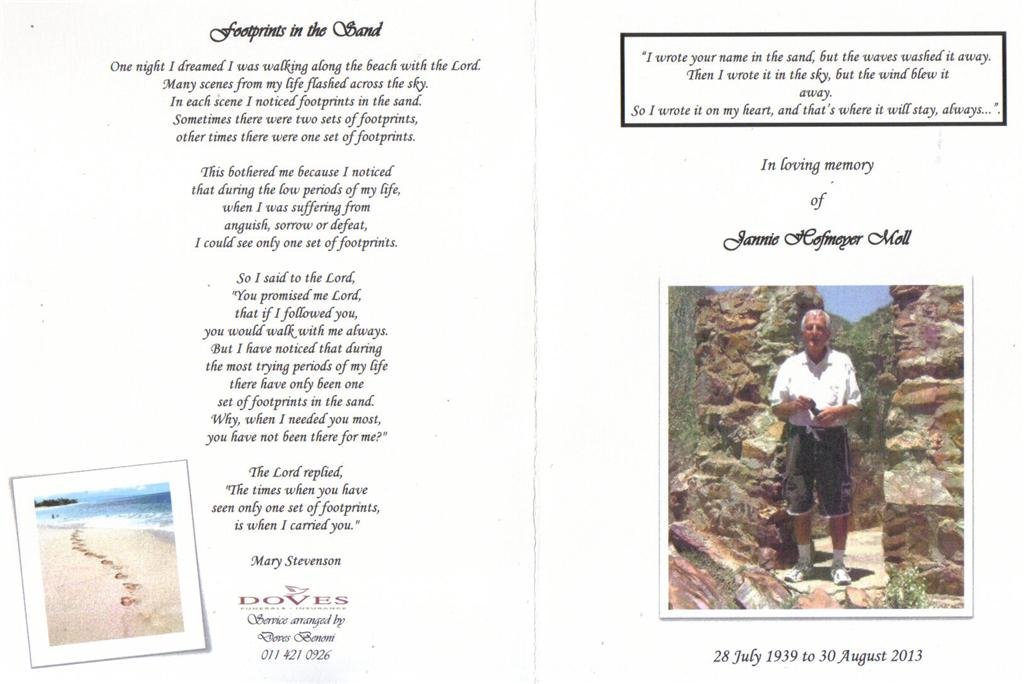 Footprints in the Sand
One night I dreamed I was walking along the beach with the Lord.
Many scenes from my life flashed across the sky.
In each scene I noticed footprints in the sand.
Sometimes there were two sets of footprints,
other times there were one set of footprints.
This bothered me because I noticed
that during the low periods of my life,
when I was suffering from
anguish, sorrow or defeat,
I could see only one set of footprints.
So I said to the Lord,
"You promised me Lord,
that if I followed you,
you would walk with me always.
But I have noticed that during
the most trying periods of my life
there have only been one
set of footprints in the sand.
Why, when I needed you most,
you have not been there for me?"
The Lord replied,
"The times when you have
seen only one set of footprints,
is when I carried you."
Mary Stevenson
DOVES
FUNERALS - INSURANCE
Service arranged by
Doves Benoni
011 421 0926
"I wrote your name in the sand, but the waves washed it away.
Then I wrote it in the sky, but the wind blew it
away.
So I wrote it on my heart, and that's where it will stay, always...".
In loving memory
of
Jannie Hofmeyer Moll
28 July 1939 to 30 August 2013